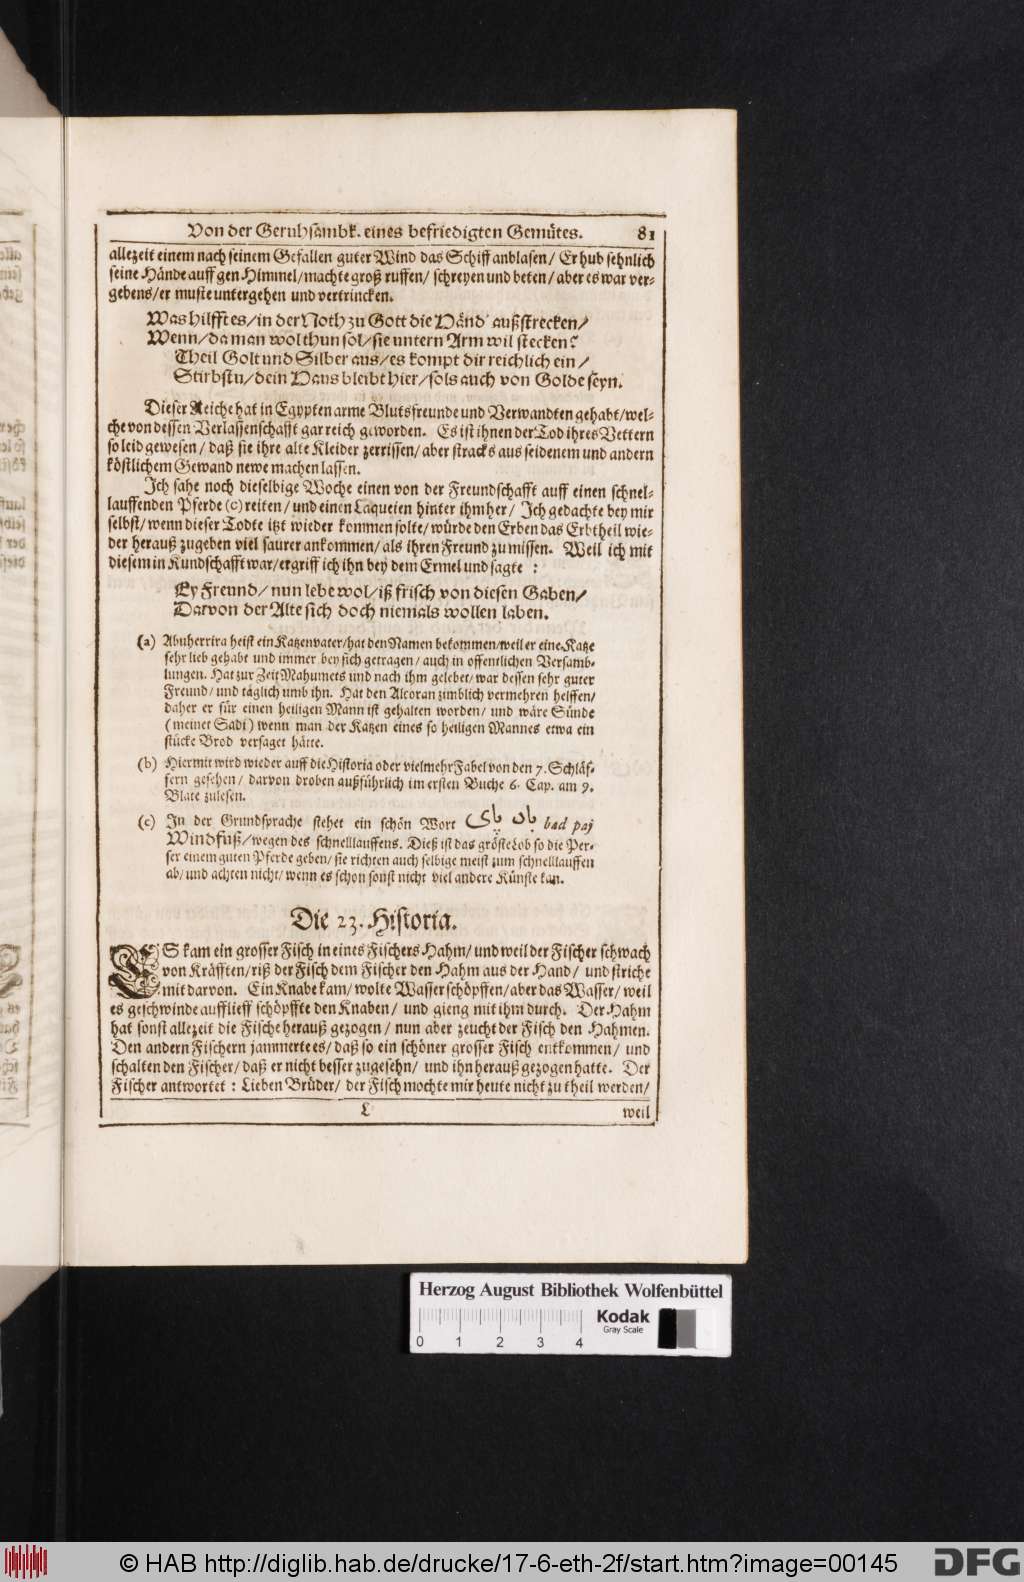 Von der Geruhsambk. eines befriedigten Gemütes. 81
allezeit einem nach seinem Gefallen guter Wind das Schiff anblasen/ Er hub sehnlich
seine Hände auff gen Himmel/ machte groß ruffen/ schreyen und beten/ aber es war ver-
gebens/ er muste untergehen und vertrincken.
Was hilfft es/ in der Noth zu Gott die Händ' außstrecken/
Wenn/ da man wol thun sol/ sie untern Arm wil stecken?
Theil Golt und Silber aus/ es kompt dir reichlich ein/
Stirbstu/ dein Haus bleibt hier/ sols auch von Golde seyn.
Dieser Reiche hat in Egypten arme Blutsfreunde und Verwandten gehabt/ wel-
che von dessen Verlassenschafft gar reich geworden. Es ist ihnen der Tod ihres Vettern
so leid gewesen/ daß sie ihre alte Kleider zerrissen/ aber stracks aus seidenem und andern
köstlichem Gewand newe machen lassen.
Ich sahe noch dieselbige Woche einen von der Freundschafft auff einen schnel-
lauffenden Pferde (c) reiten/ und einen Laqueien hinter ihm her/ Ich gedachte bey mir
selbst/ wenn dieser Todte itzt wieder kommen solte/ würde den Erben das Erbtheil wie-
der herauß zugeben viel saurer ankommen/ als ihren Freund zu missen. Weil ich mit
diesem in Kundschafft war/ ergriff ich ihn bey dem Ermel und sagte :
Ey Freund/ nun lebe wol/ iß frisch von diesen Gaben/
Darvon der Alte sich doch niemals wollen laben.
(a) Abuherrira heist ein Katzenvater/ hat den Namen bekommen/ weil er eine Katze
sehr lieb gehabt und immer bey sich getragen/ auch in offentlichen Versamb-
lungen. Hat zur Zeit Mahumets und nach ihm gelebet/ war dessen sehr guter
Freund/ und täglich umb ihn. Hat den Alcoran zimblich vermehren helffen/
daher er für einen heiligen Mann ist gehalten worden/ und wäre Sünde
(meinet Sadi) wenn man der Katzen eines so heiligen Mannes etwa ein
stücke Brod versaget hätte.
(b) Hiermit wird wieder auff die Historia oder vielmehr Fabel von den 7. Schläf-
fern gesehen/ darvon droben außführlich im ersten Buche 6. Cap. am 9.
Blate zulesen.
(c) In der Grundsprache stehet ein schön Wort باد پای bad paj
Windfuß/ wegen des schnelllauffens. Dieß ist das gröste Lob so die Per-
ser einem guten Pferde geben/ sie richten auch selbige meist zum schnelllauffen
ab/ und achten nicht/ wenn es schon sonst nicht viel andere Künste kan.
Die 23. Historia.
ES kam ein grosser Fisch in eines Fischers Hahm/ und weil der Fischer schwach
von Kräfften/ riß der Fisch dem Fischer den Hahm aus der Hand/ und striche
mit darvon. Ein Knabe kam/ wolte Wasser schöpffen/ aber das Wasser/ weil
es geschwinde aufflieff schöpffte den Knaben/ und gieng mit ihm durch. Der Hahm
hat sonst allezeit die Fische herauß gezogen/ nun aber zeucht der Fisch den Hahmen.
Den andern Fischern jammerte es/ daß so ein schöner grosser Fisch entkommen/ und
schalten den Fischer/ daß er nicht besser zugesehn/ und ihn herauß gezogen hatte. Der
Fischer antwortet : Lieben Brüder/ der Fisch mochte mir heute nicht zu theil werden/
L weil
Herzog August Bibliothek Wolfenbüttel
0 1 2 3 4
Kodak
Gray Scale
© HAB http://diglib.hab.de/drucke/17-6-eth-2f/start.htm?image=00145
DFG